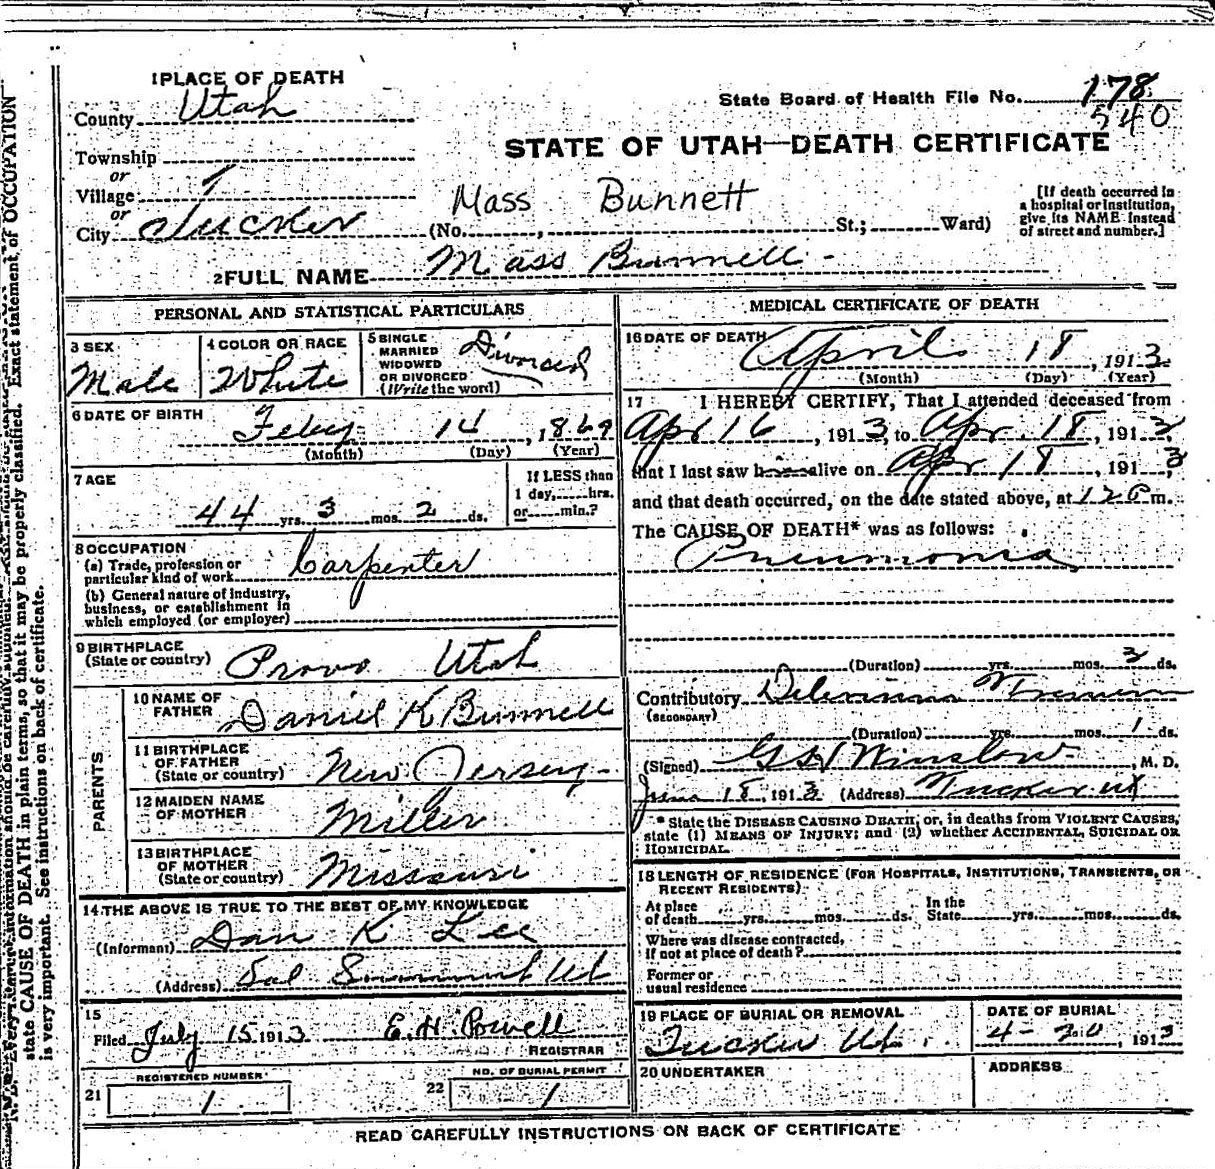 1 PLACE OF DEATH
County Utah
State Board of Health File No. 178
540
STATE OF UTAH—DEATH CERTIFICATE
Township
or
Village
or
City Tucker
Mass Bunnett
(No. , St.; Ward)
[If death occurred in
a hospital or institution,
give its NAME instead
of street and number.]
2 FULL NAME Mass Bunnell
PERSONAL AND STATISTICAL PARTICULARS
3 SEX
Male
4 COLOR OR RACE
White
5 SINGLE
MARRIED
WIDOWED
OR DIVORCED
(Write the word)
Divorced
6 DATE OF BIRTH
Feby 14, 1869
(Month) (Day) (Year)
7 AGE
44 yrs. 3 mos. 2 ds.
If LESS than
1 day, hrs.
or min.?
8 OCCUPATION
(a) Trade, profession or
particular kind of work Carpenter
(b) General nature of industry,
business, or establishment in
which employed (or employer)
9 BIRTHPLACE
(State or country) Provo Utah
PARENTS
10 NAME OF
FATHER Daniel K Bunnell
11 BIRTHPLACE
OF FATHER
(State or country) New Jersey
12 MAIDEN NAME
OF MOTHER Miller
13 BIRTHPLACE
OF MOTHER
(State or country) Missouri
14 THE ABOVE IS TRUE TO THE BEST OF MY KNOWLEDGE
(Informant) Dan K Lee
(Address) Sol Summit Ut
15
Filed July 15 1913 E. H. Powell
REGISTRAR
REGISTERED NUMBER
21 1
NO. OF BURIAL PERMIT
22 1
MEDICAL CERTIFICATE OF DEATH
16 DATE OF DEATH April 18, 1913
(Month) (Day) (Year)
17 I HEREBY CERTIFY, That I attended deceased from
Apr 16, 1913, to Apr. 18, 1913,
that I last saw h alive on Apr 18, 1913,
and that death occurred, on the date stated above, at m.
The CAUSE OF DEATH* was as follows:
Pneumonia
(Duration) yrs. mos. 3 ds.
Contributory Delerium Tremens
(SECONDARY)
(Duration) yrs. mos. 1 ds.
(Signed) Winslow, M. D.
June 18, 1913 (Address) Tucker Ut
* State the DISEASE CAUSING DEATH, or, in deaths from VIOLENT CAUSES,
state (1) MEANS OF INJURY; and (2) whether ACCIDENTAL, SUICIDAL OR
HOMICIDAL.
18 LENGTH OF RESIDENCE (FOR HOSPITALS, INSTITUTIONS, TRANSIENTS, OR
RECENT RESIDENTS)
At place
of death yrs. mos. ds.
In the
State yrs. mos. ds.
Where was disease contracted,
if not at place of death?
Former or
usual residence
19 PLACE OF BURIAL OR REMOVAL
Tucker Ut.
DATE OF BURIAL
4-20, 1913
20 UNDERTAKER
ADDRESS
READ CAREFULLY INSTRUCTIONS ON BACK OF CERTIFICATE
state CAUSE OF DEATH in plain terms, so that it may be properly classified. Exact statement of OCCUPATION
is very important. See instructions on back of certificate.